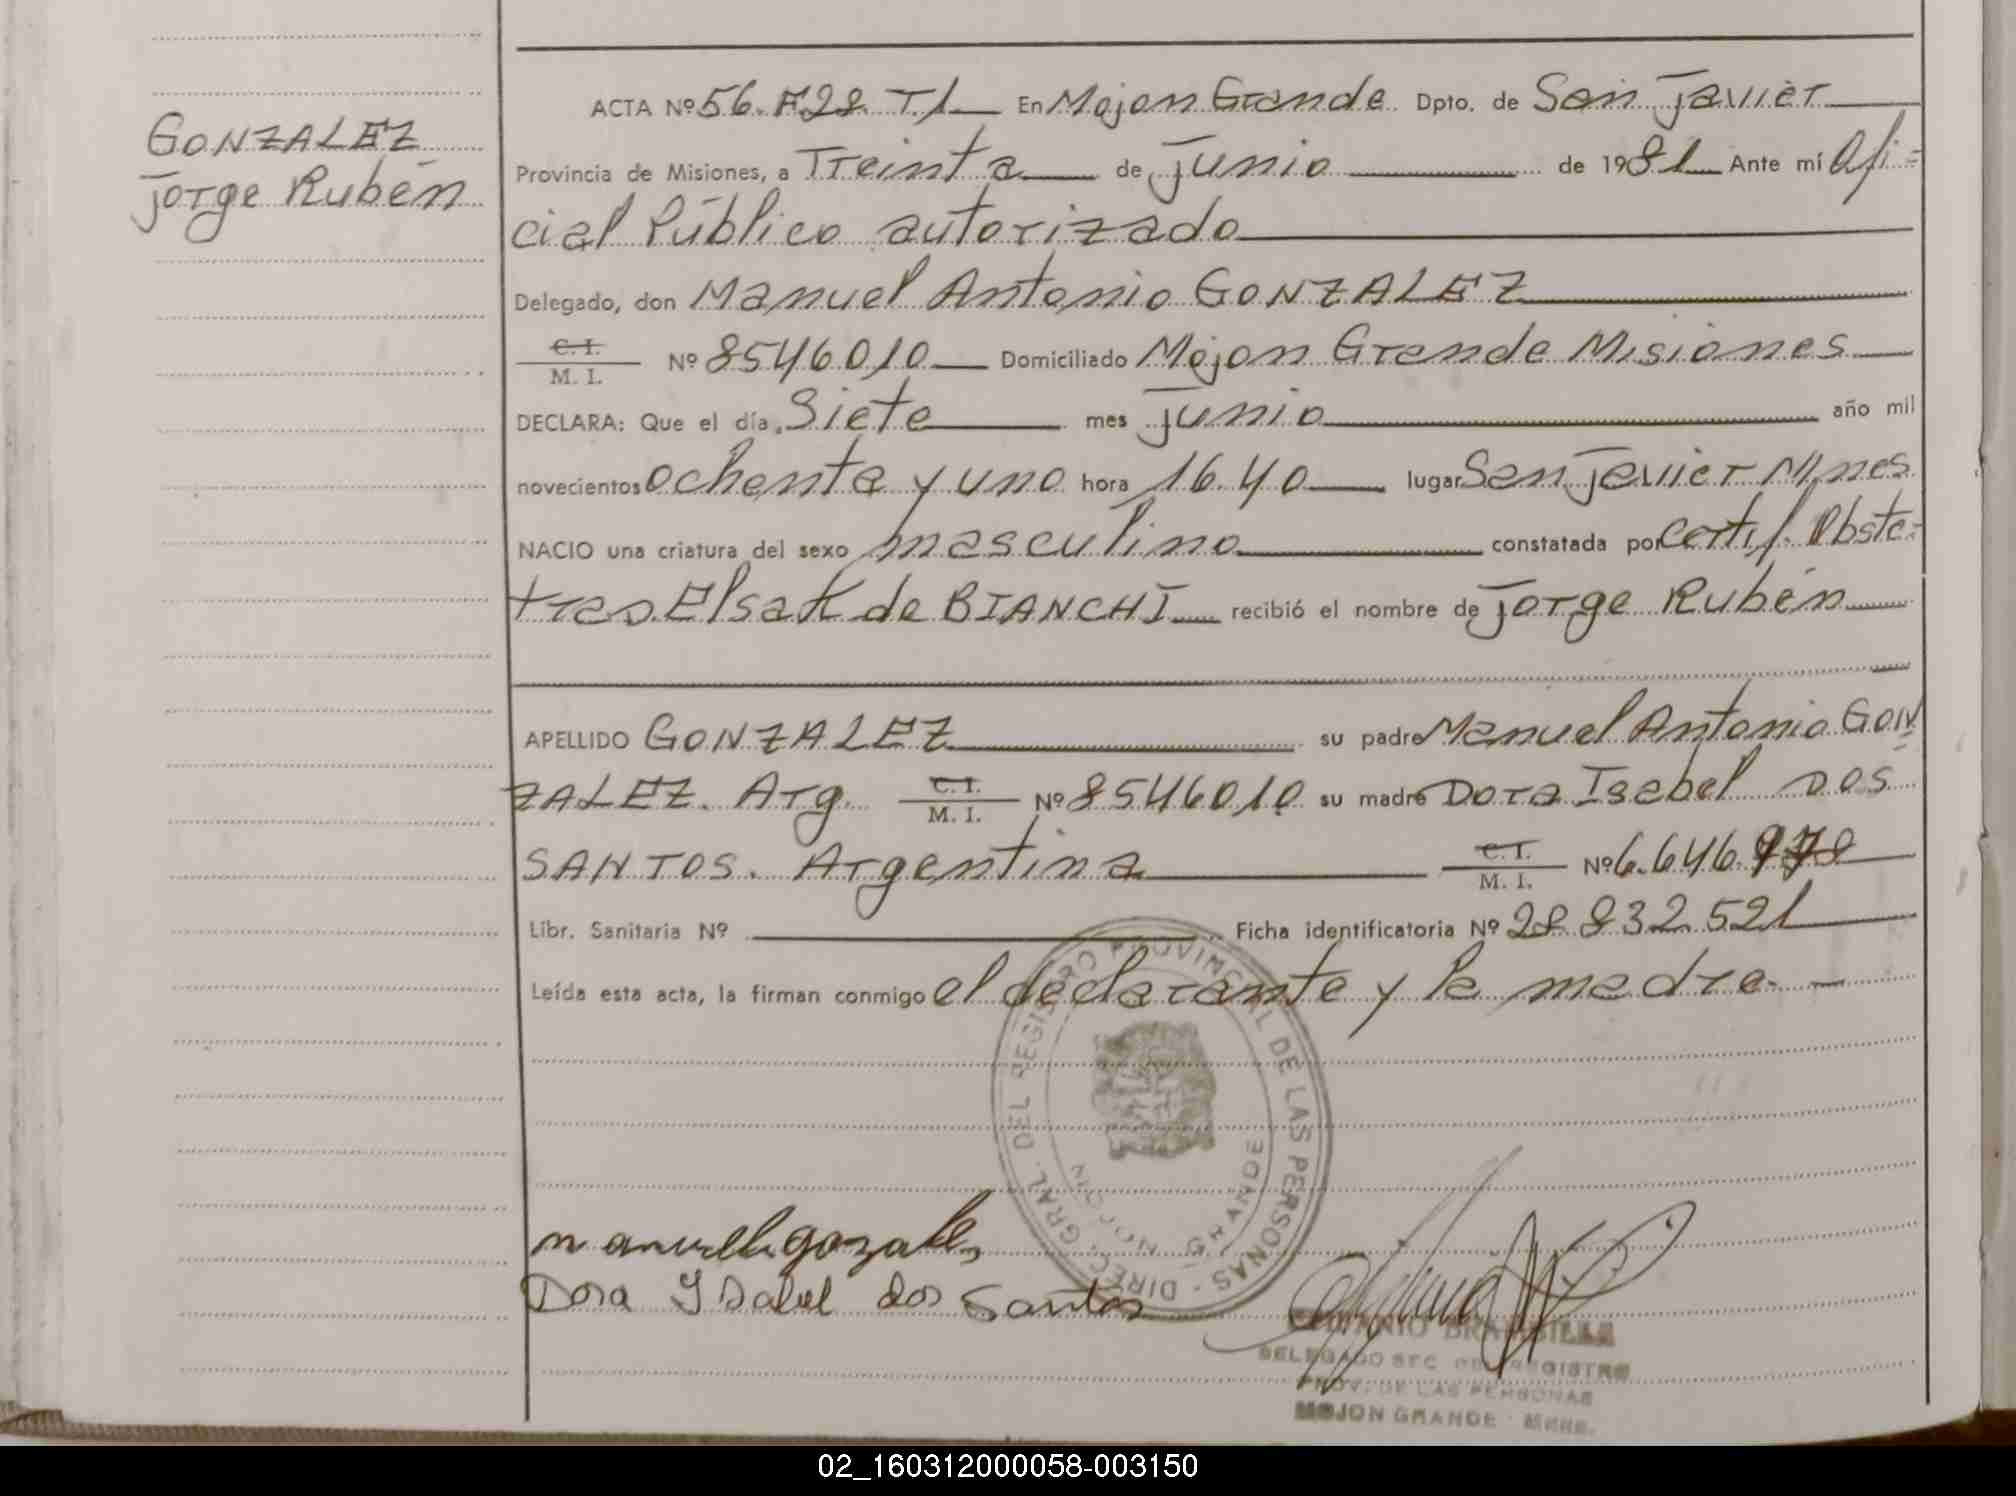 GONZALEZ
Jorge Rubén
ACTA Nº 56. F28. T1 En Mojon Grande Dpto. de San Javier
Provincia de Misiones, a Treinta de junio de 1981 Ante mí Ofi=
cial Público autorizado
Delegado, don Manuel Antonio GONZALEZ
C. I.
M. I. Nº 8546010 Domiciliado Mojon Grande Misiones
DECLARA: Que el día, Siete mes junio año mil
novecientos ochenta y uno hora 16.40 lugar San Javier Mnes.
NACIO una criatura del sexo masculino constatada por Certif. Obste=
tres. Elsa K de BIANCHI recibió el nombre de Jorge Rubén
APELLIDO GONZALEZ su padre Manuel Antonio GON
ZALEZ. Arg. C. I.
M. I. Nº 8546010 su madre Dora Isabel DOS
SANTOS. Argentina C. I.
M. I. Nº 6.646.970
Libr. Sanitaria Nº Ficha identificatoria Nº 28.832.521
Leída esta acta, la firman conmigo el declarante y la madre.
DIREC. GRAL. DEL REGISTRO PROVINCIAL DE LAS PERSONAS
MOJON GRANDE
manuel gonzalez
Dora Ysabel dos Santos
DELEGADO SEC. DEL REGISTRO
PROV. DE LAS PERSONAS
MOJON GRANDE - Mnes.
02_160312000058-003150